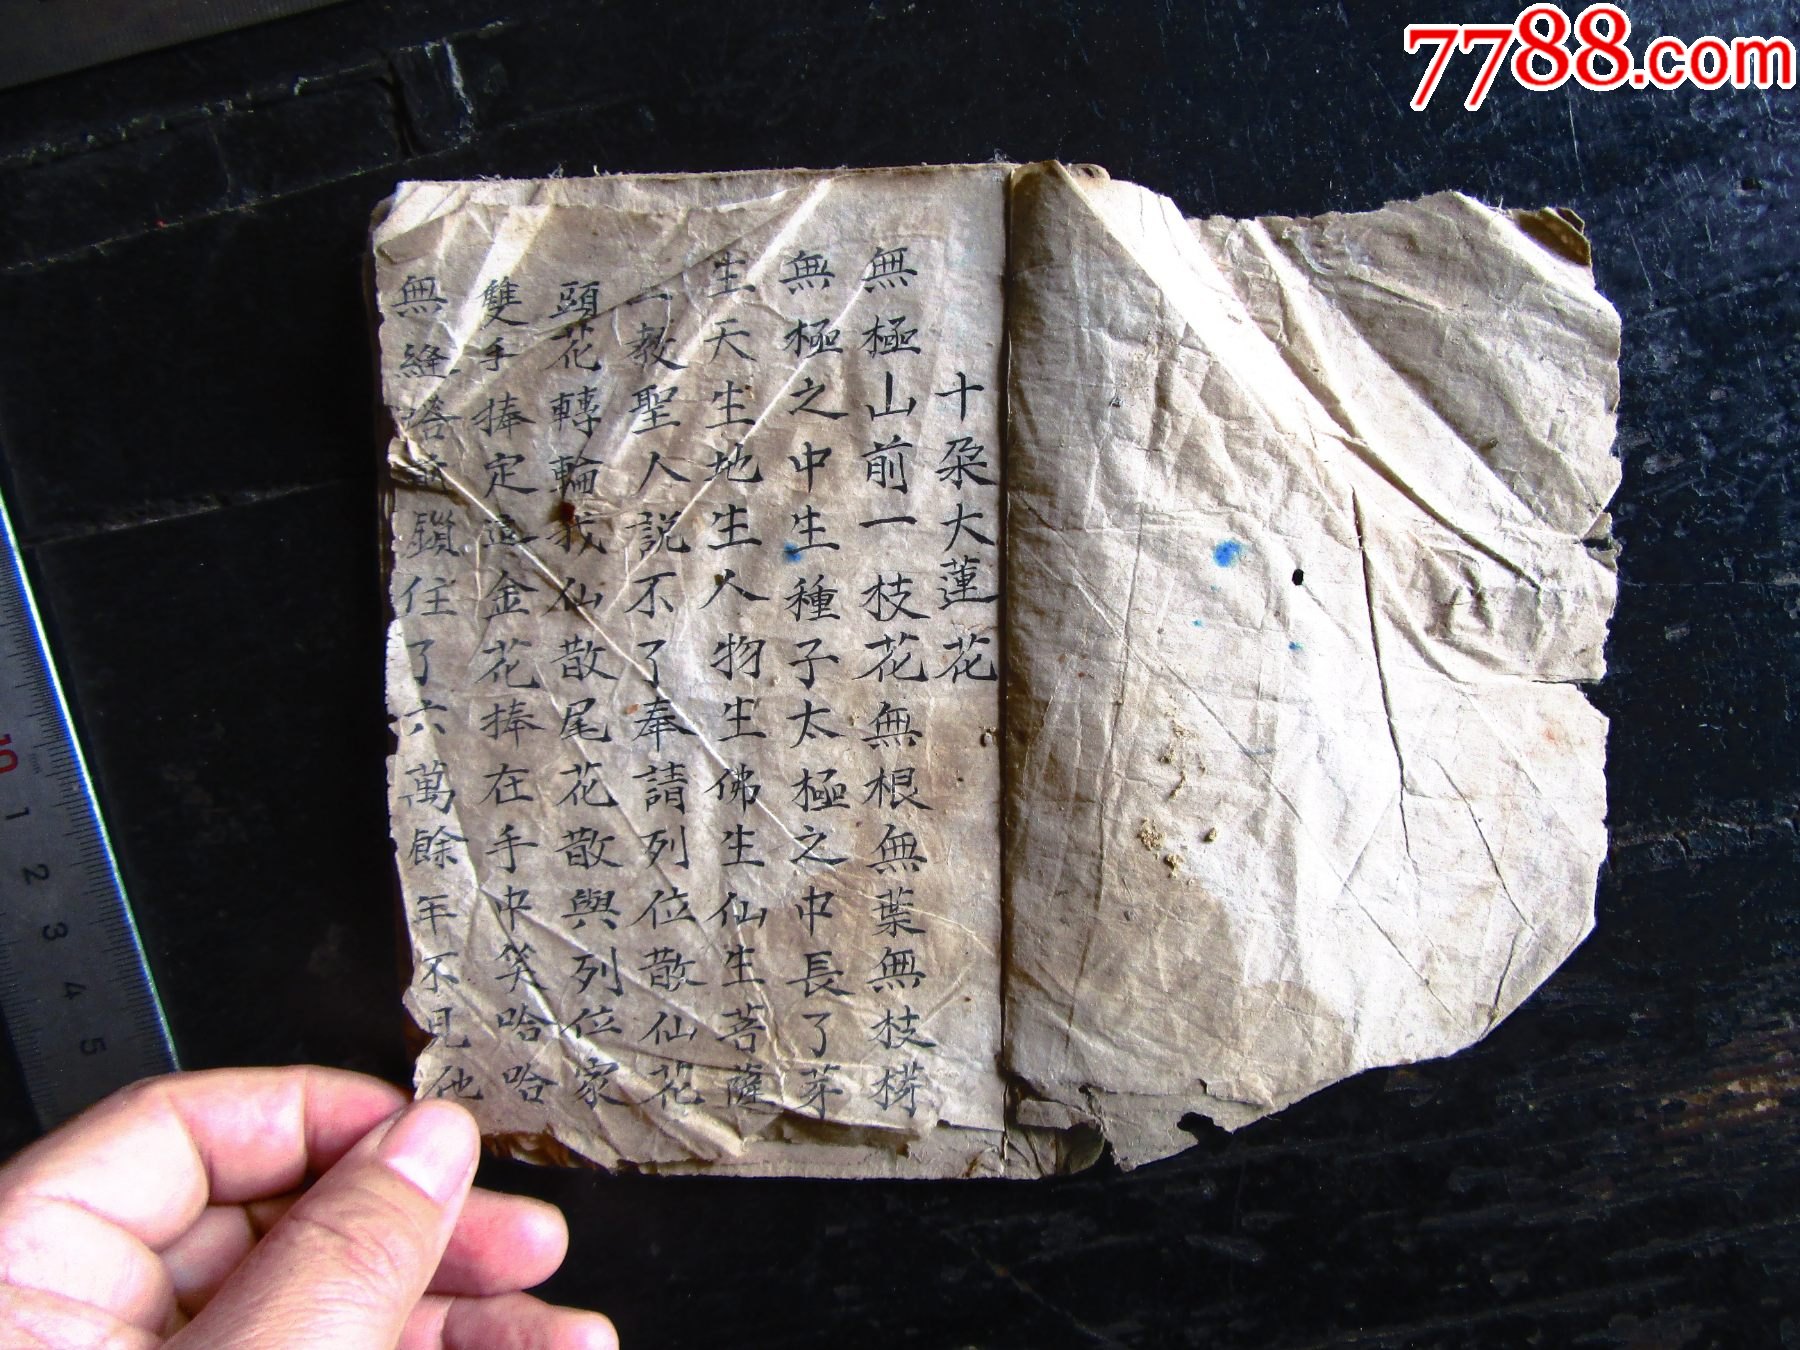 7788.com
十朶大蓮花
無極山前一枝花無根無葉無枝椏
無極之中生種子太極之中長了芽
生天生地生人物生佛生仙生菩薩
教聖人説不了奉請列位散仙花
頭花轉輪我仙散尾花散與列位家
雙手捧定這金花捧在手中笑哈哈
無縫塔前鎖住了六萬餘年不見他
10
1
2
3
4
5